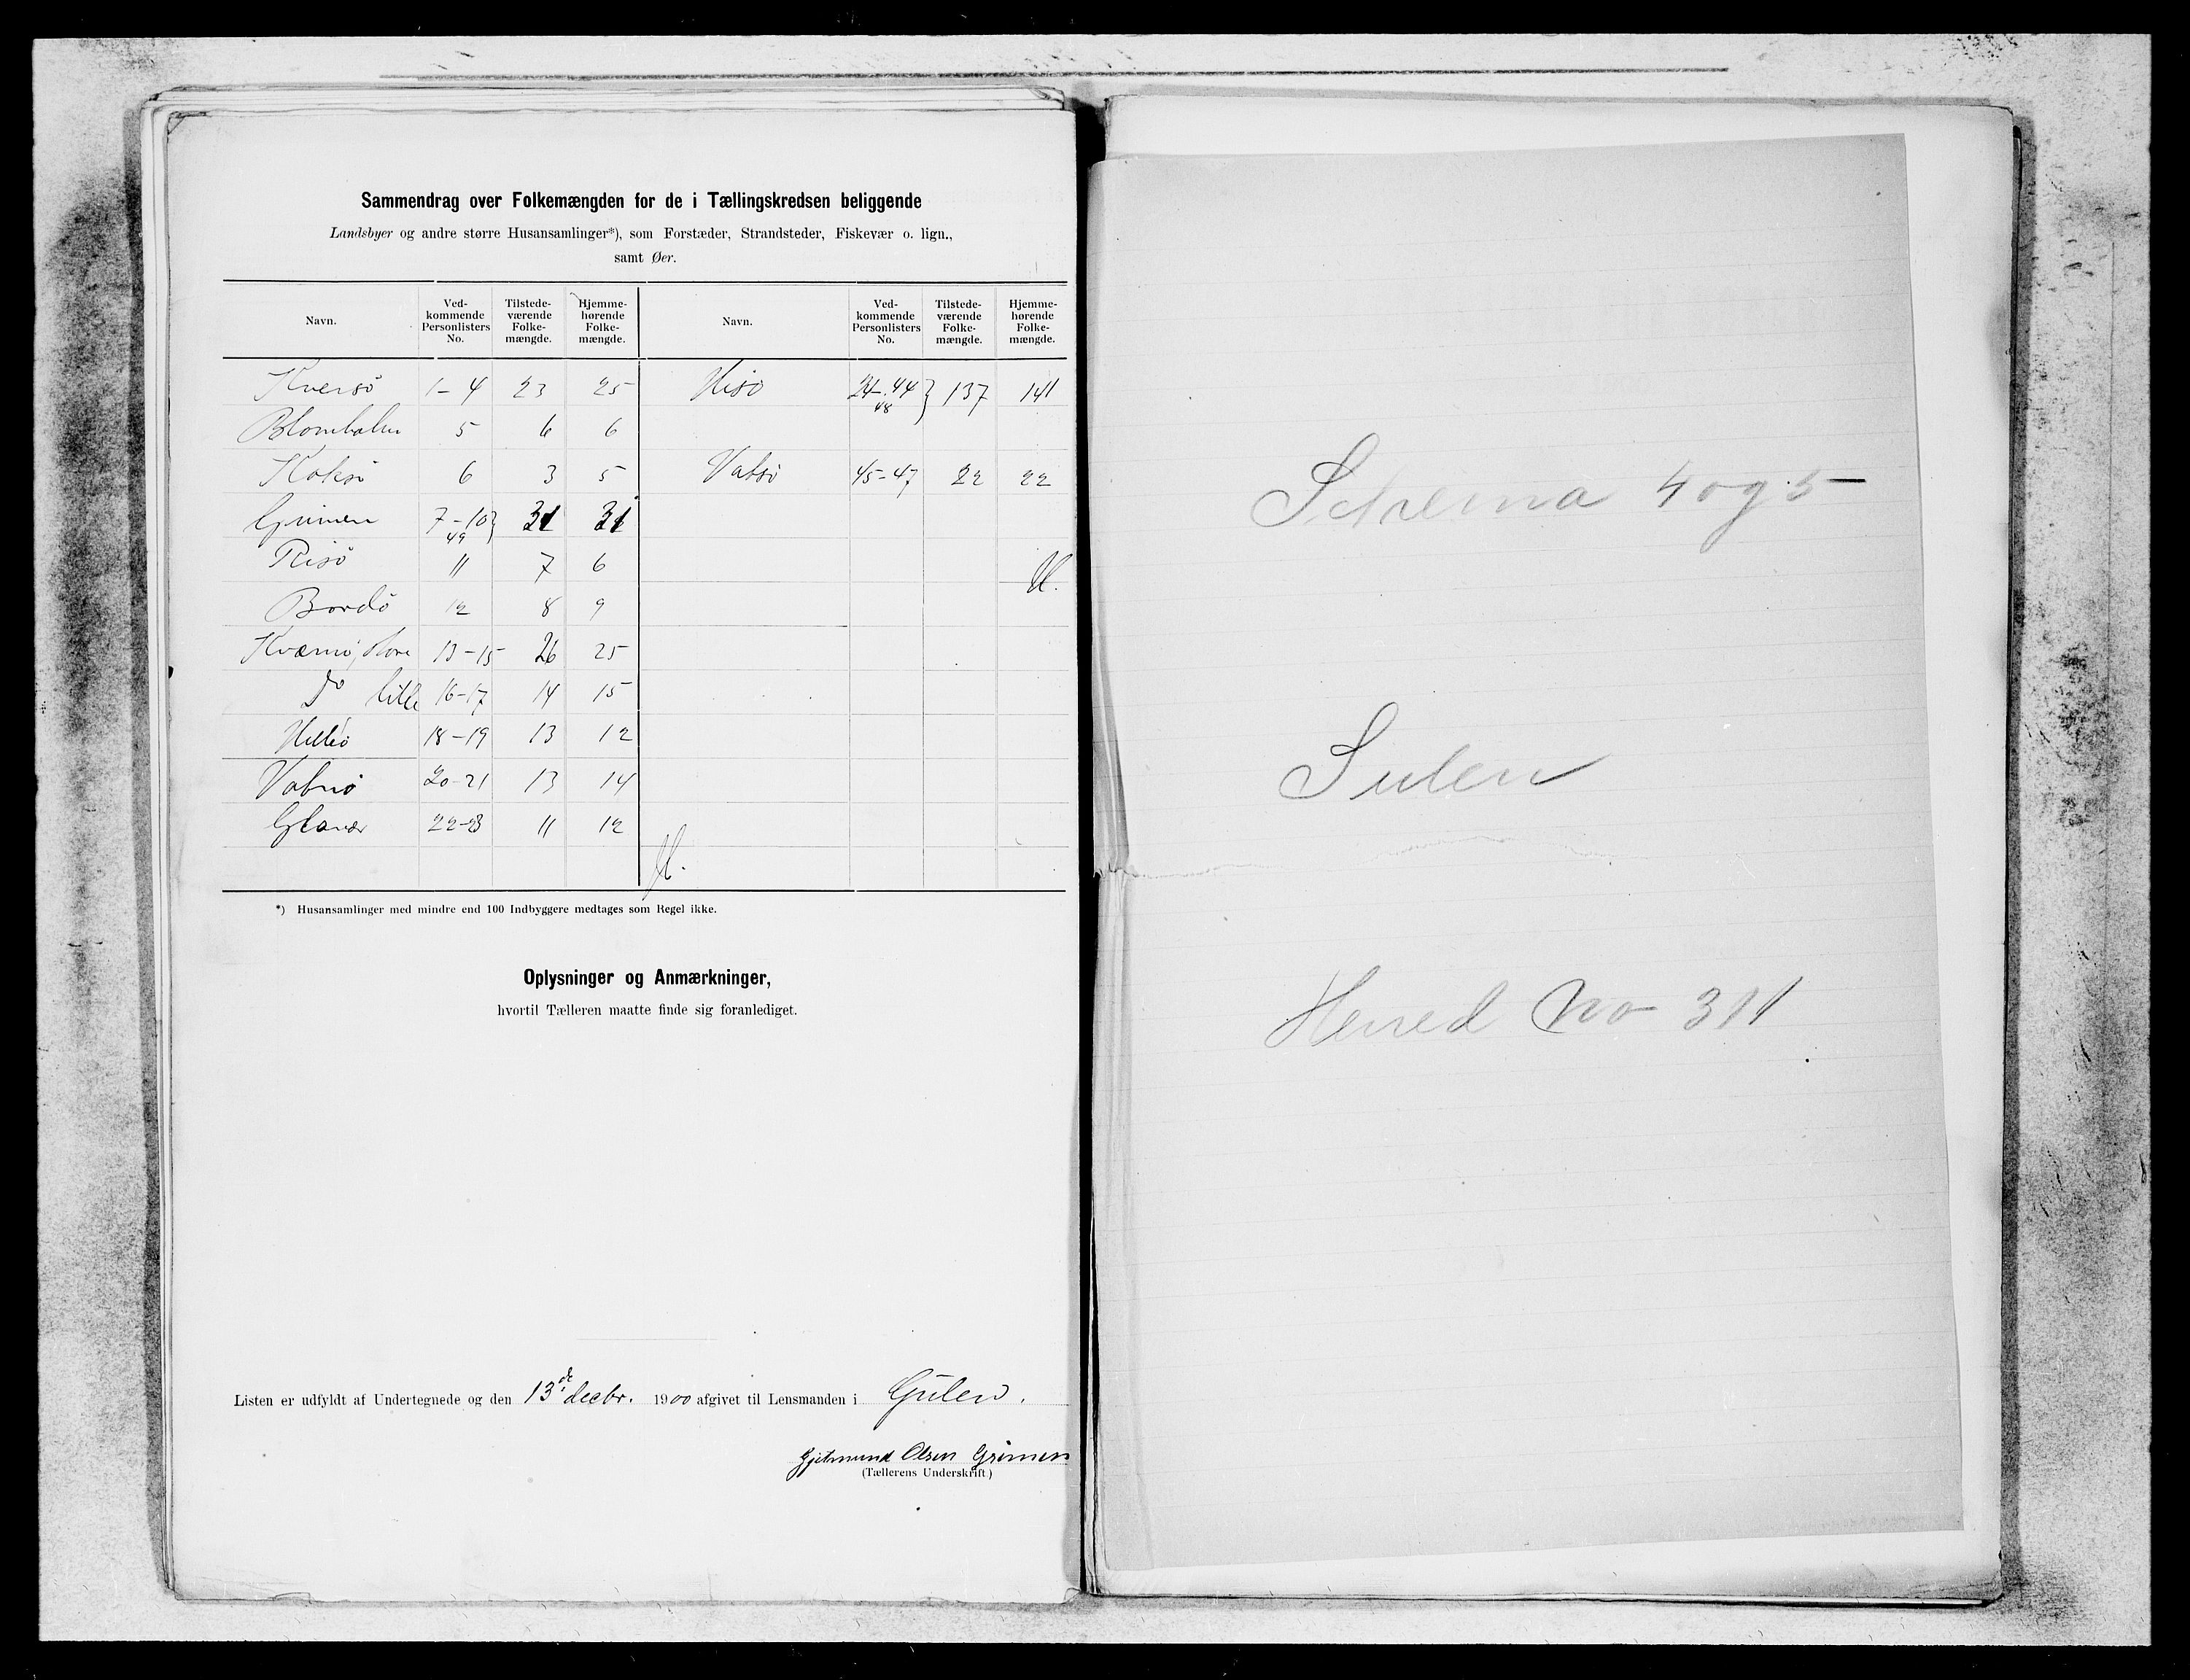 Sammendrag over Folkemængden for de i Tællingskredsen beliggende
Landsbyer og andre større Husansamlinger*), som Forstæder, Strandsteder, Fiskevær o. lign.,
samt Øer.
Navn. Ved-kommende Personlisters No. Tilstede-værende Folke-mængde. Hjemme-hørende Folke-mængde. Navn. Ved-kommende Personlisters No. Tilstede-værende Folke-mængde. Hjemme-hørende Folke-mængde.
Kversö 1-4 23 25 Hisö 24-44 } 137 141
48
Blomholm 5 6 6
Koksö 6 3 5 Vatsö 45-47 22 22
Grimen 7-10 } 31 31
49
Risö 11 7 6
Bordö 12 8 9
Kværnö, store 13-15 26 25
Do lille 16-17 14 15
Hillö 18-19 13 12
Vatnö 20-21 13 14
Glavær 22-23 11 12
*) Husansamlinger med mindre end 100 Indbyggere medtages som Regel ikke.
Oplysninger og Anmærkninger,
hvortil Tælleren maatte finde sig foranlediget.
Listen er udfyldt af Undertegnede og den 13de decbr. 1900 afgivet til Lensmanden i Gulen.
Gjetmund Olsen Grimen
(Tællerens Underskrift.)
Schema 4 og 5
Sulen
Herred No 311